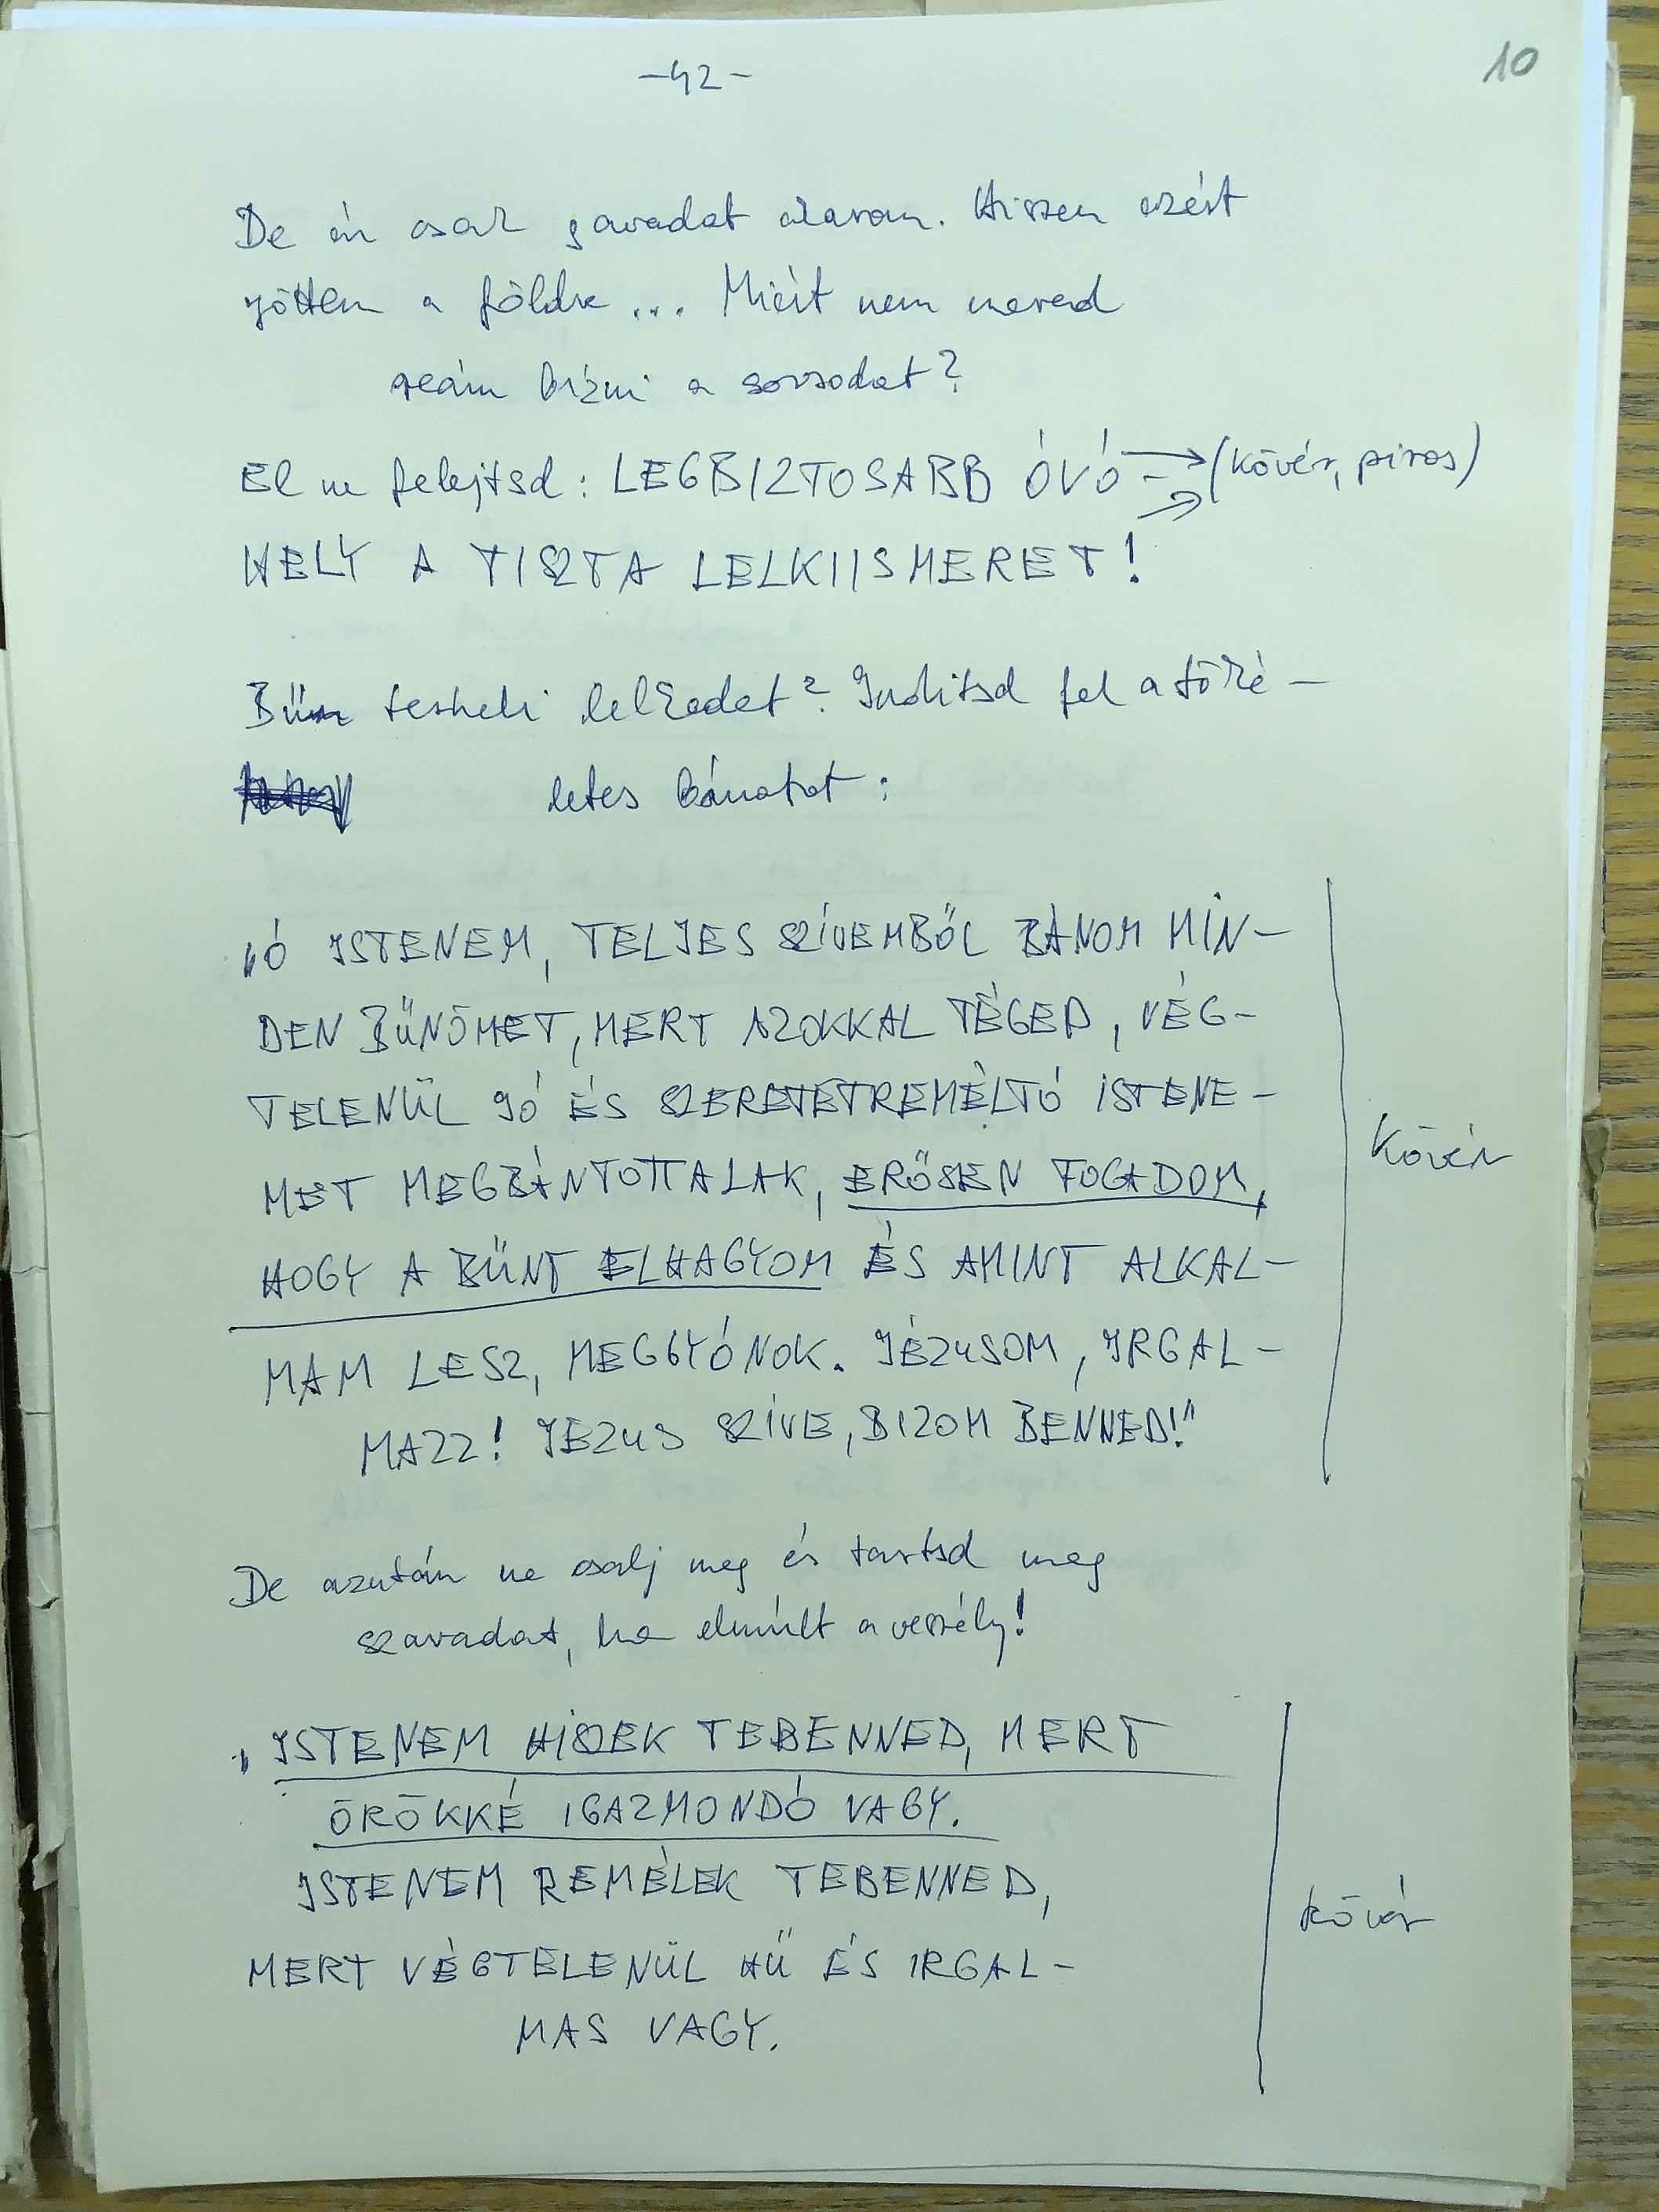 -42-
10
De én csak javadat akarom. Hiszen ezért
jöttem a földre ... Miért nem mered
reám bízni a sorsodat?
El ne felejtsd: LEGBIZTOSABB ÓVÓ- (kövér, piros)
HELY A TISZTA LELKIISMERET!
Bűn terheli lelkedet? Indítsd fel a töké-
letes bánatot:
„Ó ISTENEM, TELJES SZÍVEMBŐL BÁNOM MIN-
DEN BŰNÖMET, MERT AZOKKAL TÉGED, VÉG-
TELENÜL JÓ ÉS SZERETETREMÉLTÓ ISTENE-
MET MEGBÁNTOTTALAK, ERŐSEN FOGADOM,
Kövér
HOGY A BŰNT ELHAGYOM ÉS AMINT ALKAL-
MAM LESZ, MEGGYÓNOK. JÉZUSOM, IRGAL-
MAZZ! JÉZUS SZÍVE, BIZOM BENNED!"
De azután ne csalj meg és tartsd meg
szavadat, ha elmúlt a veszély!
„ISTENEM HISZEK TEBENNED, MERT
ÖRÖKKÉ IGAZMONDÓ VAGY.
ISTENEM REMÉLEK TEBENNED,
kövér
MERT VÉGTELENÜL HŰ ÉS IRGAL-
MAS VAGY.